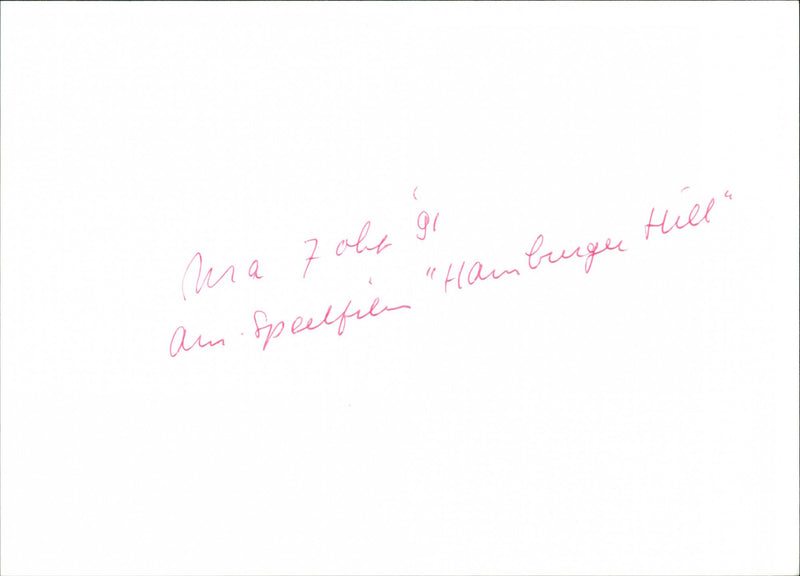 7 okt '91
am. Speelfilm "Hamburger Hill"